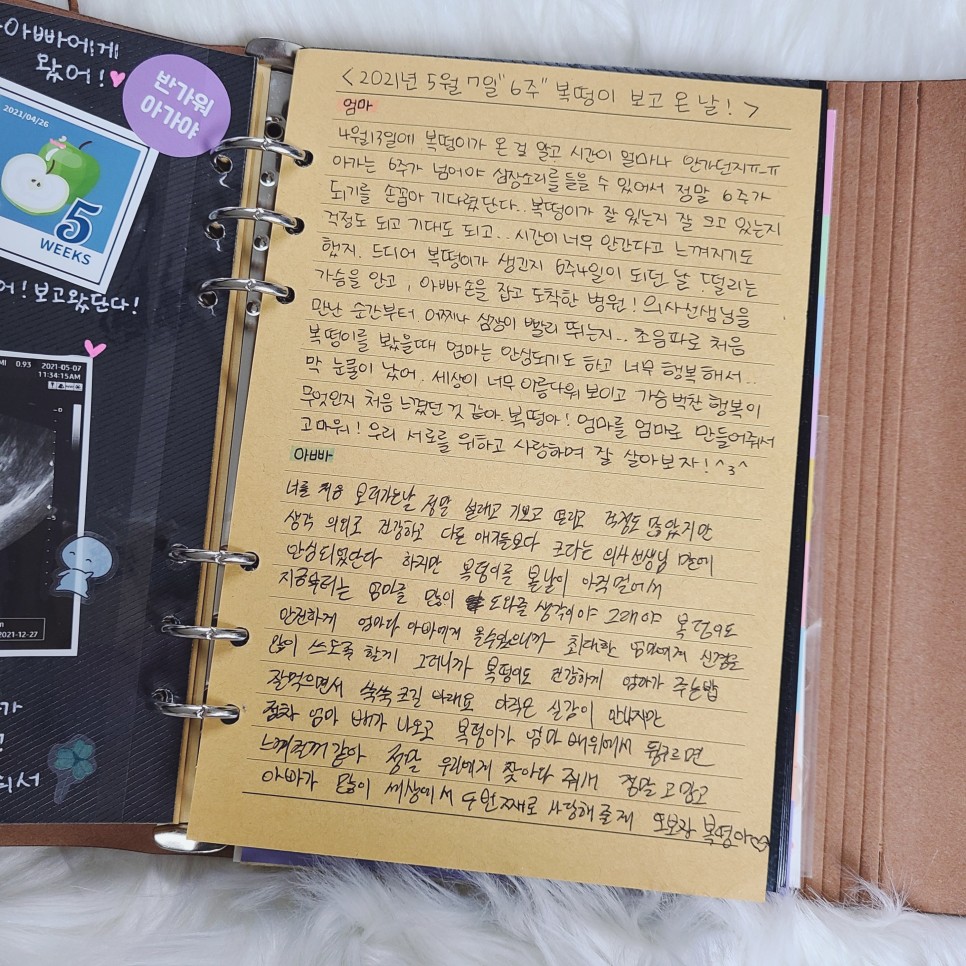 아빠에게
왔어!
반가워
아가야
2021/04/26
5
WEEKS
어! 보고왔단다!
MI 0.93 2021-05-07
11:34:15AM
2021-12-27
가
고
되서
<2021년 5월 7일 "6주" 복떵이 보고 온 날! >
엄마
4월13일에 복떵이가 온 걸 알고 시간이 얼마나 안가던지ㅠ_ㅠ
아가는 6주가 넘어야 심장소리를 들을 수 있어서 정말 6주가
되기를 손꼽아 기다렸단다.. 복떵이가 잘 있는지 잘 크고 있는지
걱정도 되고 기대도 되고.. 시간이 너무 안간다고 느껴지기도
했지. 드디어 복떵이가 생긴지 6주4일이 되던 날! 떨리는
가슴을 안고, 아빠손을 잡고 도착한 병원! 의사선생님을
만난 순간부터 어찌나 심장이 빨리 뛰는지.. 초음파로 처음
복떵이를 봤을때 엄마는 안심되기도 하고 너무 행복해서..
막 눈물이 났어. 세상이 너무 아름다워 보이고 가슴벅찬 행복이
무엇인지 처음 느꼈던 것 같아. 복떵아! 엄마를 엄마로 만들어줘서
고마워! 우리 서로를 위하고 사랑하며 잘 살아보자! ^3^
아빠
너를 처음 보러가는날 정말 설레고 기쁘고 떨리고 걱정도 많았지만
생각 의외로 건강하고 다른 애기들보다 크다는 의사선생님 말에
안심되었단다 하지만 복떵이를 볼날이 아직 멀어서
지금부터는 엄마를 많이 도와줄 생각이야 그래야 복떵이도
안전하게 엄마랑 아빠에게 올수있으니까 최대한 엄마에게 신경을
많이 쓰도록 할께 그러니까 복떵이도 건강하게 엄마가 주는밥
잘먹으면서 쑥쑥 크길 바래요 아직은 실감이 안나지만
점차 엄마 배가 나오고 복떵이가 엄마 배위에서 뒹구르면
느껴질꺼같아 정말 우리에게 찾아와 줘서 정말 고맙고
아빠가 많이 세상에서 두번째로 사랑해줄께 또보장 복떵아♡